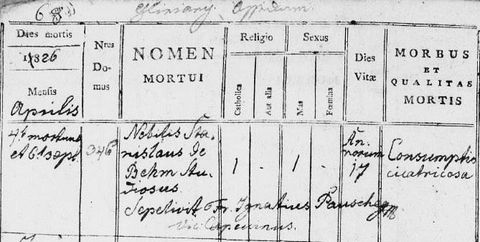 683 Gliniany Oppidum
Dies mortis
1826
Mensis
Aprilis
Nrus
Domus
NOMEN
MORTUI
Religio
Catholica
Aut alia
Sexus
Mas
Foemina
Dies
Vitæ
MORBUS
ET
QUALITAS
MORTIS
4ta mortuus
et 6 sept
346
Nobilis Sta-
nislaus de
Behm Stu-
diosus
1
1
Annorum
17
Consumptio
cicatricosa
Sepelivit Fr. Ignatius Pauscheg